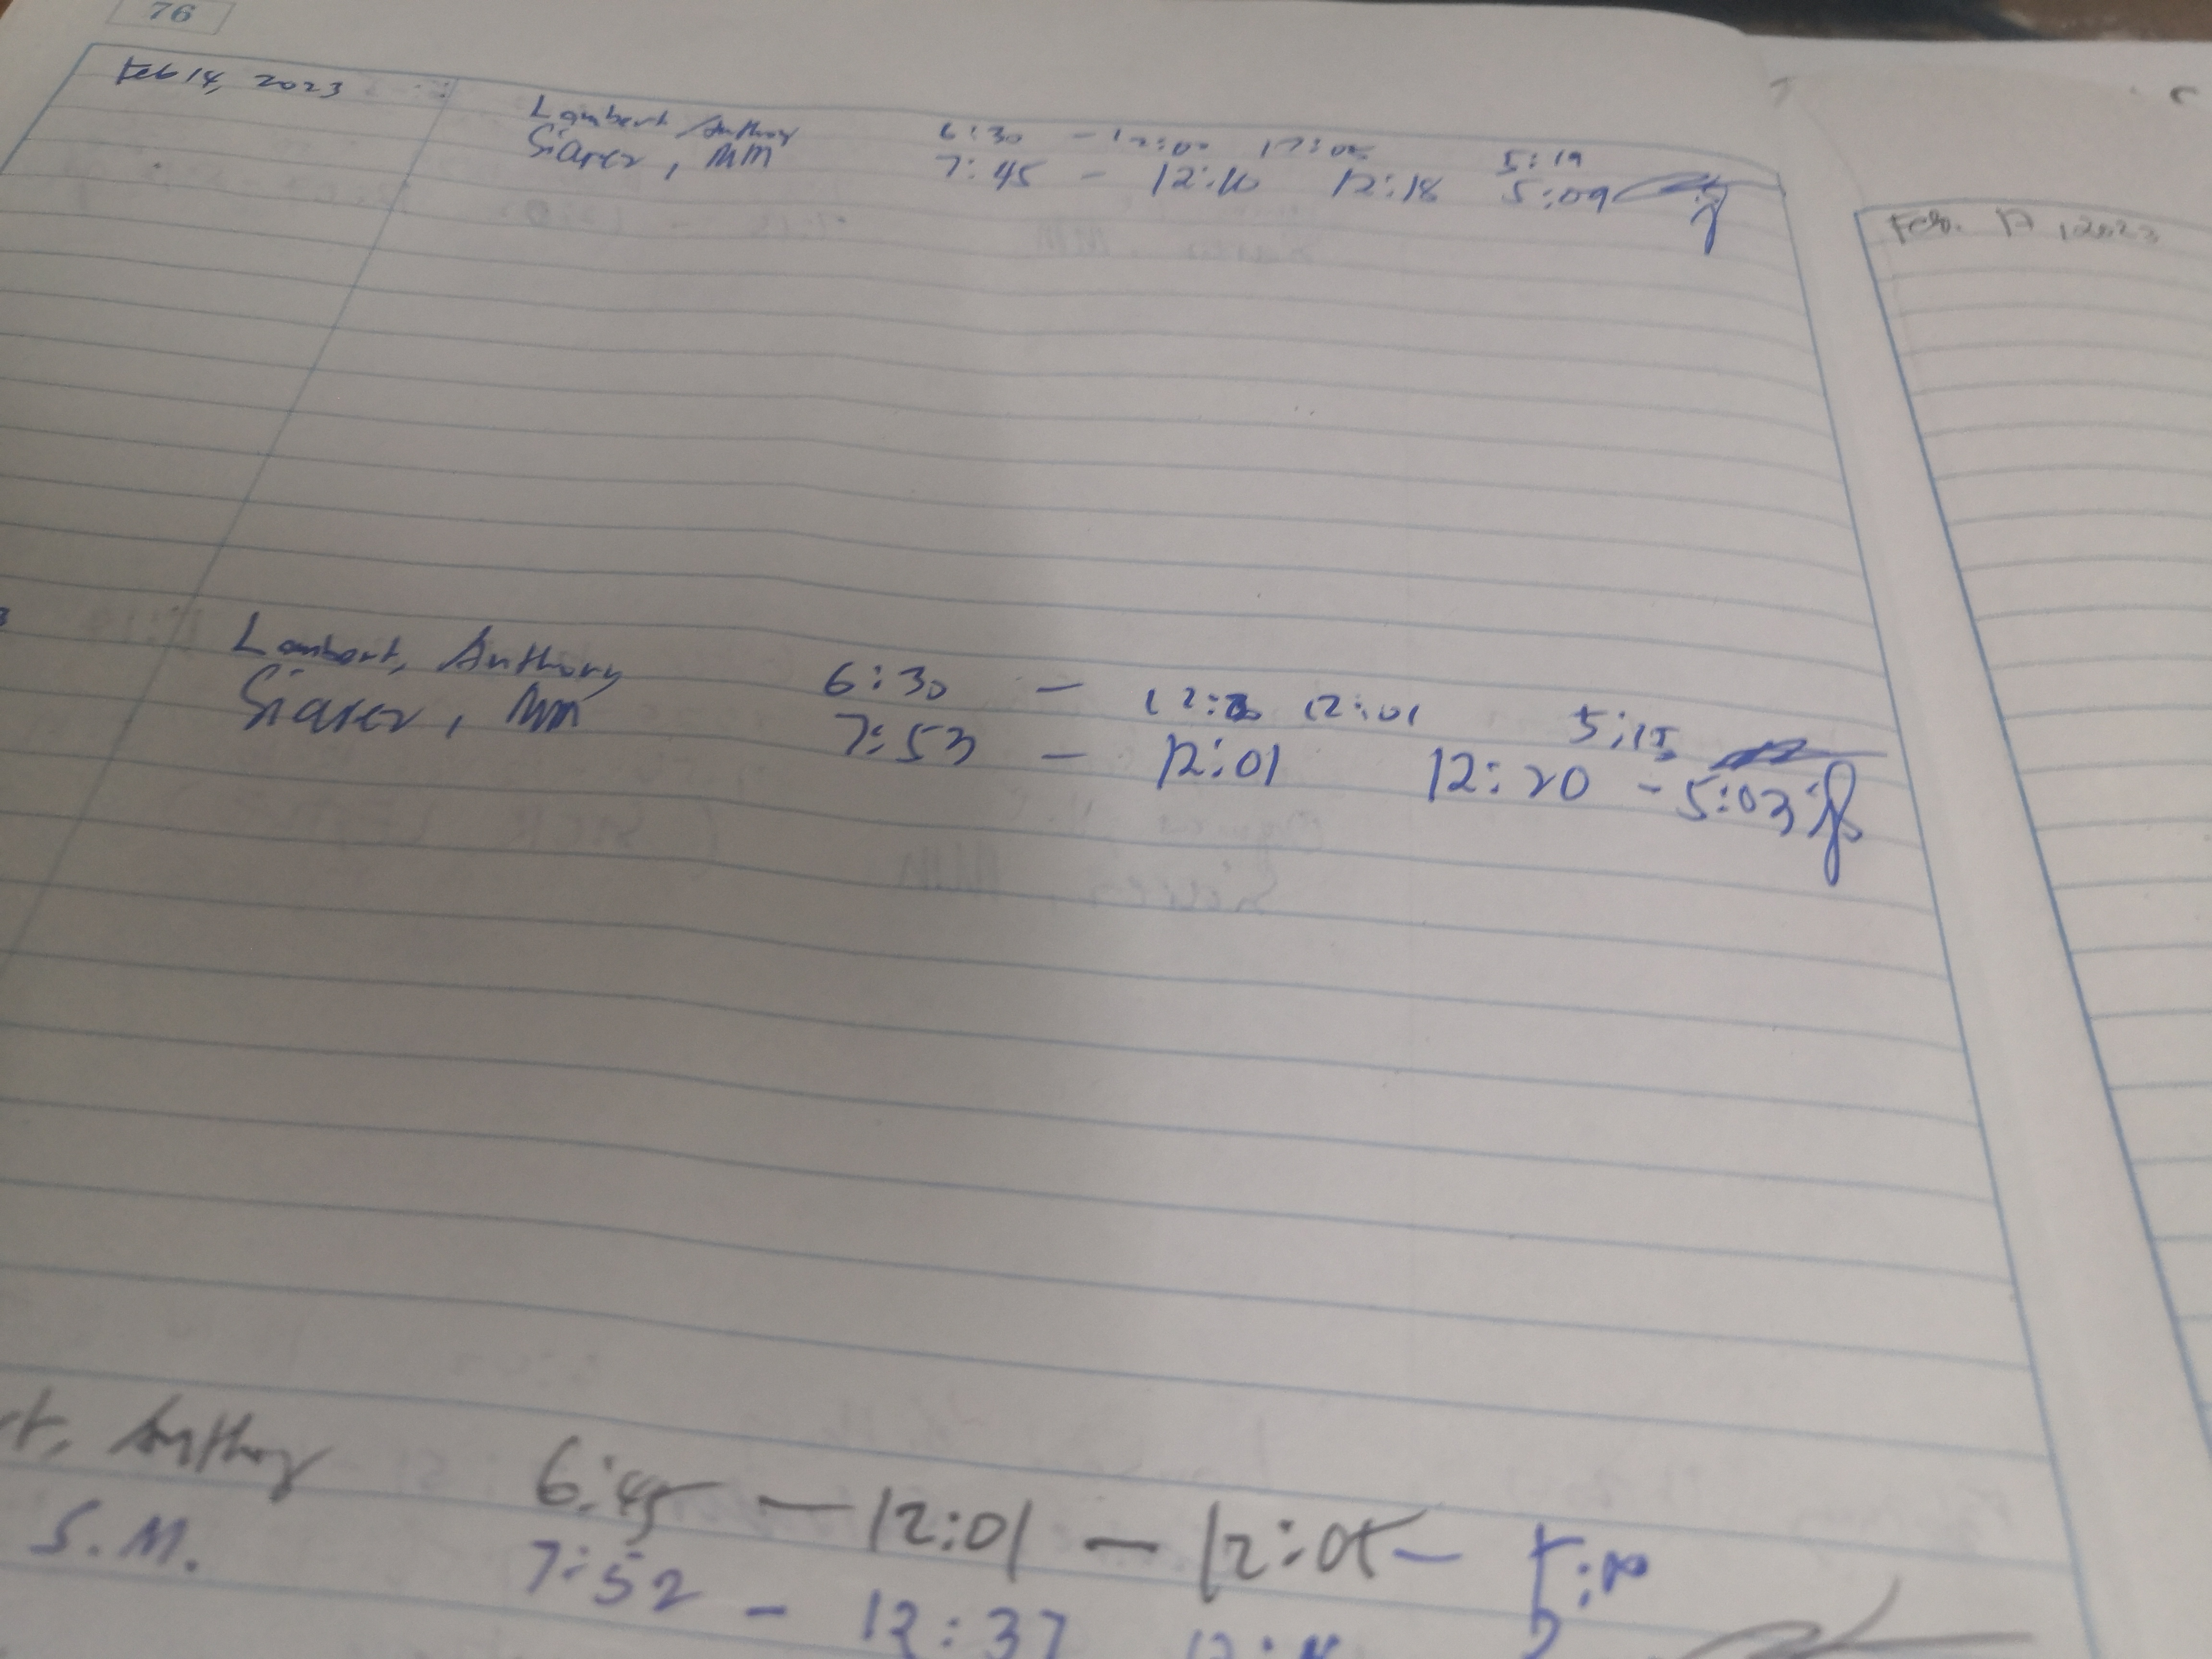 76
Feb 14, 2023
Lambert, Anthony 6:30 - 12:00 12:05 5:19
Siarez, MM 7:45 - 12:10 12:18 5:09
Lambert, Anthony 6:30 - 12:01 5:15
Siarez, MM 7:53 - 12:01 12:20 - 5:03
Anthony 6:45 - 12:01 - 12:05 -
S.M. 7:52 - 12:37
Feb. 17, 2023